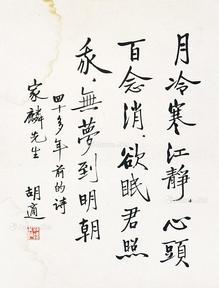 月冷寒江靜，心頭
百念消．欲眠君照
我．無夢到明朝
四十多年前的詩
家麟先生
胡適